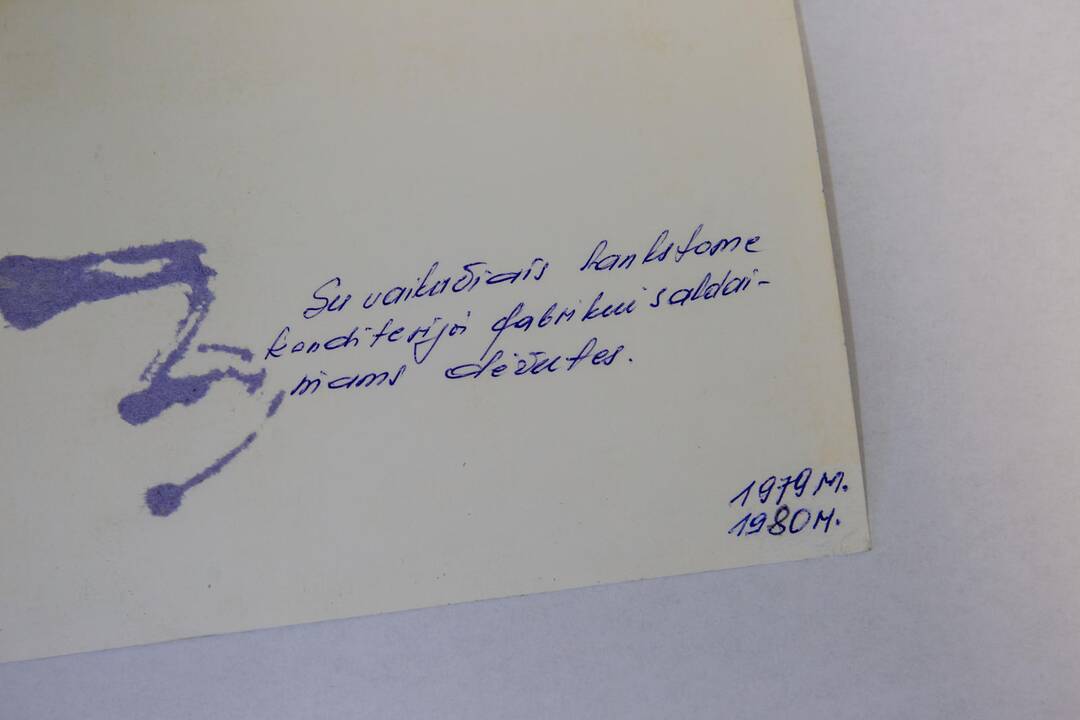 Su vaikučiais lankstome
konditerijos fabrikui saldai-
niams dėžutes.
1979 M.
1980 M.